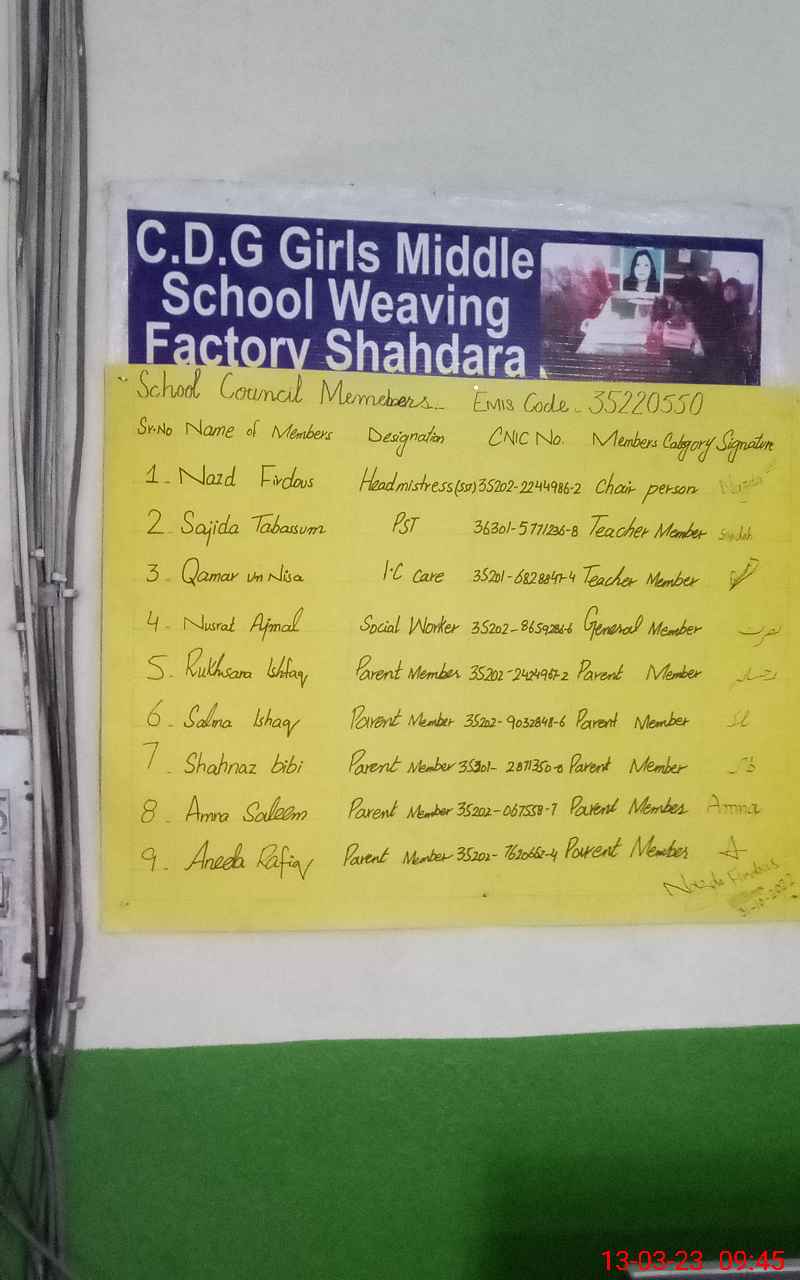 C.D.G Girls Middle
School Weaving
Factory Shahdara
School Council Memebers EMIS Code - 35220550
Sr.No Name of Members Designation CNIC No. Members Catgory Signature
1 - Nazd Firdous Headmistress(SST) 35202-2244986-2 Chair person
2 - Sajida Tabassum PST 36301-5771236-8 Teacher Member
3 - Qamar un Nisa I.C care 35201-6828847-4 Teacher Member
4 - Nusrat Ajmal Social Worker 35202-8659286-6 General Member نصرت
5 - Rukhsana Ishfaq Parent Member 35202-2424967-2 Parent Member
6 - Salma Ishaq Parent Member 35202-9032848-6 Parent Member
7 - Shahnaz bibi Parent Member Parent Member
8 - Amna Saleem Parent Member 35202-067558-7 Parent Member Amna
9 - Aneela Rafiq Parent Member 35202-7620662-4 Parent Member A
31-10-2022
13-03-23 09:45